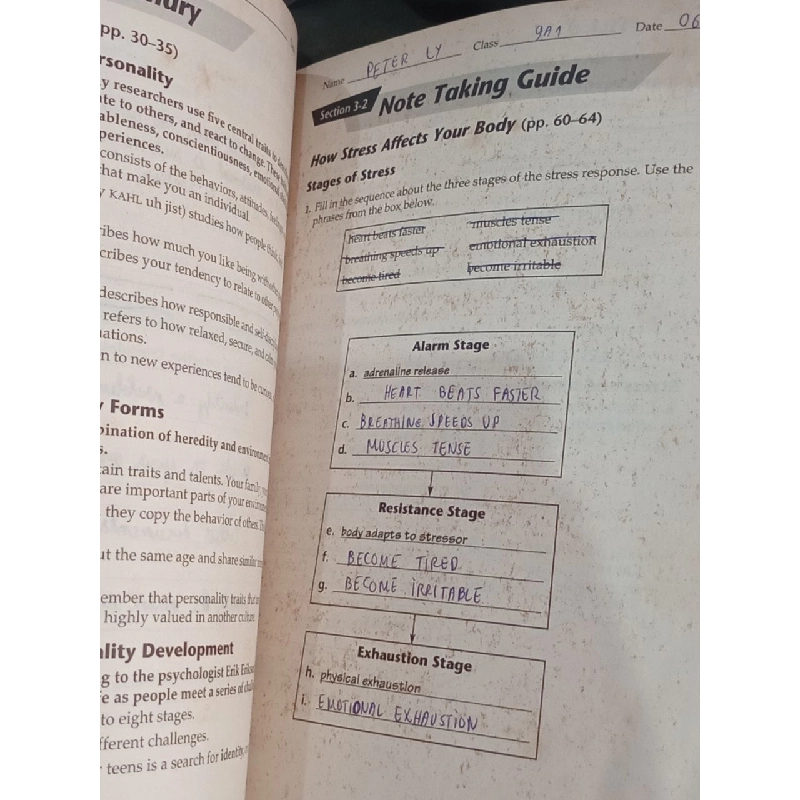 pp. 30–35)
y researchers use five central traits to
ate to others, and react to change.
ableness, conscientiousness, emotional
periences.
consists of the behaviors, attitudes,
that make you an individual.
KAHL uh jist) studies how people
ribes how much you like being with
cribes your tendency to relate to other
describes how responsible and
refers to how relaxed, secure, and
ations.
n to new experiences tend to be
Forms
bination of heredity and
s.
ain traits and talents. Your family
are important parts of your
they copy the behavior of others.
ut the same age and share similar
ember that personality traits that
highly valued in another culture.
ality Development
g to the psychologist Erik
e as people meet a series of
to eight stages.
fferent challenges.
teens is a search for identity,
Name PETER LY Class 9A1 Date 06
Section 3-2 Note Taking Guide
How Stress Affects Your Body (pp. 60–64)
Stages of Stress
1. Fill in the sequence about the three stages of the stress response. Use the
phrases from the box below.
heart beats faster muscles tense
breathing speeds up emotional exhaustion
become tired become irritable
Alarm Stage
a. adrenaline release
b. HEART BEATS FASTER
c. BREATHING SPEEDS UP
d. MUSCLES TENSE
Resistance Stage
e. body adapts to stressor
f. BECOME TIRED
g. BECOME IRRITABLE
Exhaustion Stage
h. physical exhaustion
i. EMOTIONAL EXHAUSTION